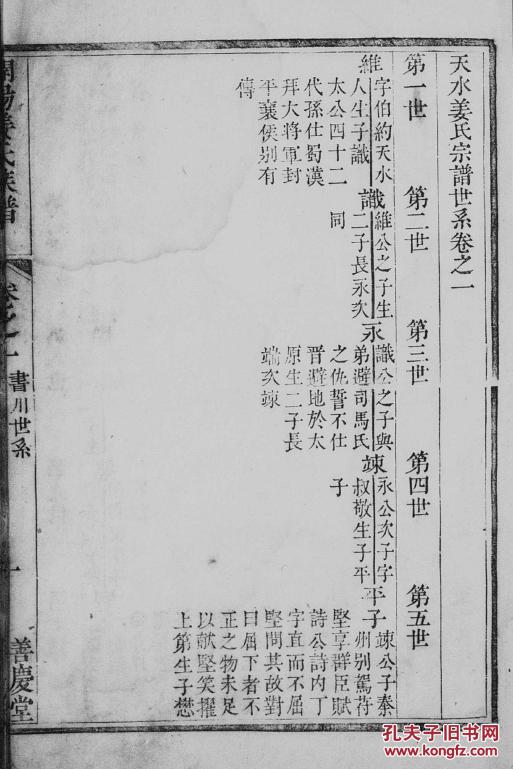 天水姜氏宗譜世系卷之一
第一世
第二世
第三世
第四世
第五世
維
字伯約天水
人生子識
太公四十二
代孫仕蜀漢
拜大將軍封
平襄侯別有
傳
識
維公之子生
二子長永次
同
永
識公之子與
弟避司馬氏
之仇誓不仕
晉避地於太
原生二子長
端次竦
竦
永公次子字
叔敬生子平
子
平子
竦公子秦
州別駕苻
堅享群臣賦
詩公詩內丁
字直而不屈
堅問其故對
曰屈下者不
正之物未足
以献堅笑擢
上第生子懋
姜氏族譜
卷之一
書川世系
一
善慶堂
孔夫子旧书网